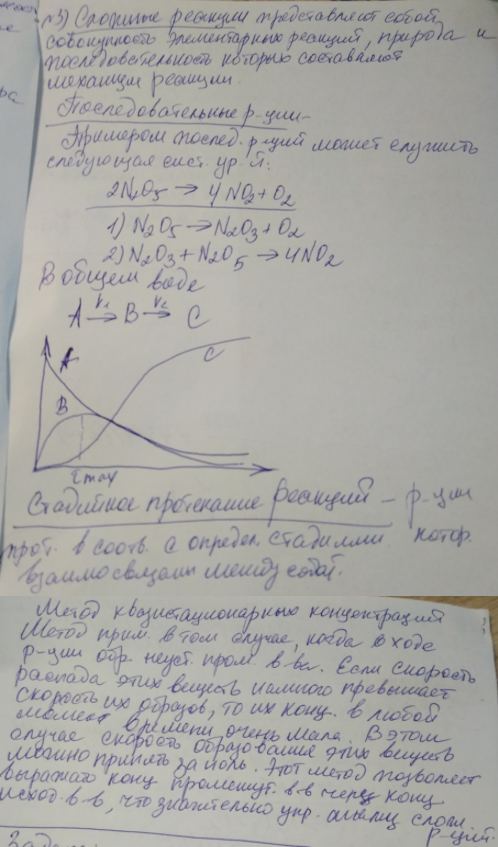 №3) Сложные реакции представляют собой
совокупность элементарных реакций, природа и
последовательность которых составляют
механизм реакции.
Последовательные р-ции-
Примером послед. р-ций может служить
следующая сист. ур-й:
2N2O5 → 4NO2 + O2
1) N2O5 → N2O3 + O2
2) N2O3 + N2O5 → 4NO2
В общем виде
A → B → C
A
B
C
τmax
Стадийное протекание реакций – р-ции
прот. в соотв. с определ. стадиями. котор.
взаимосвязаны между собой.
Метод квазистационарных концентраций
Метод прим. в том случае, когда в ходе
р-ции обр. неуст. пром. в-ва. Если скорость
распада этих веществ намного превышает
скорость их образов, то их конц. в любой
момент времени очень мала. В этом
случае скорость образование этих веществ
можно принять за ноль. Этот метод позволяет
выражать конц промежут. в-в через конц
исход. в-в, что значительно упр. анализ слож.
р-ций.